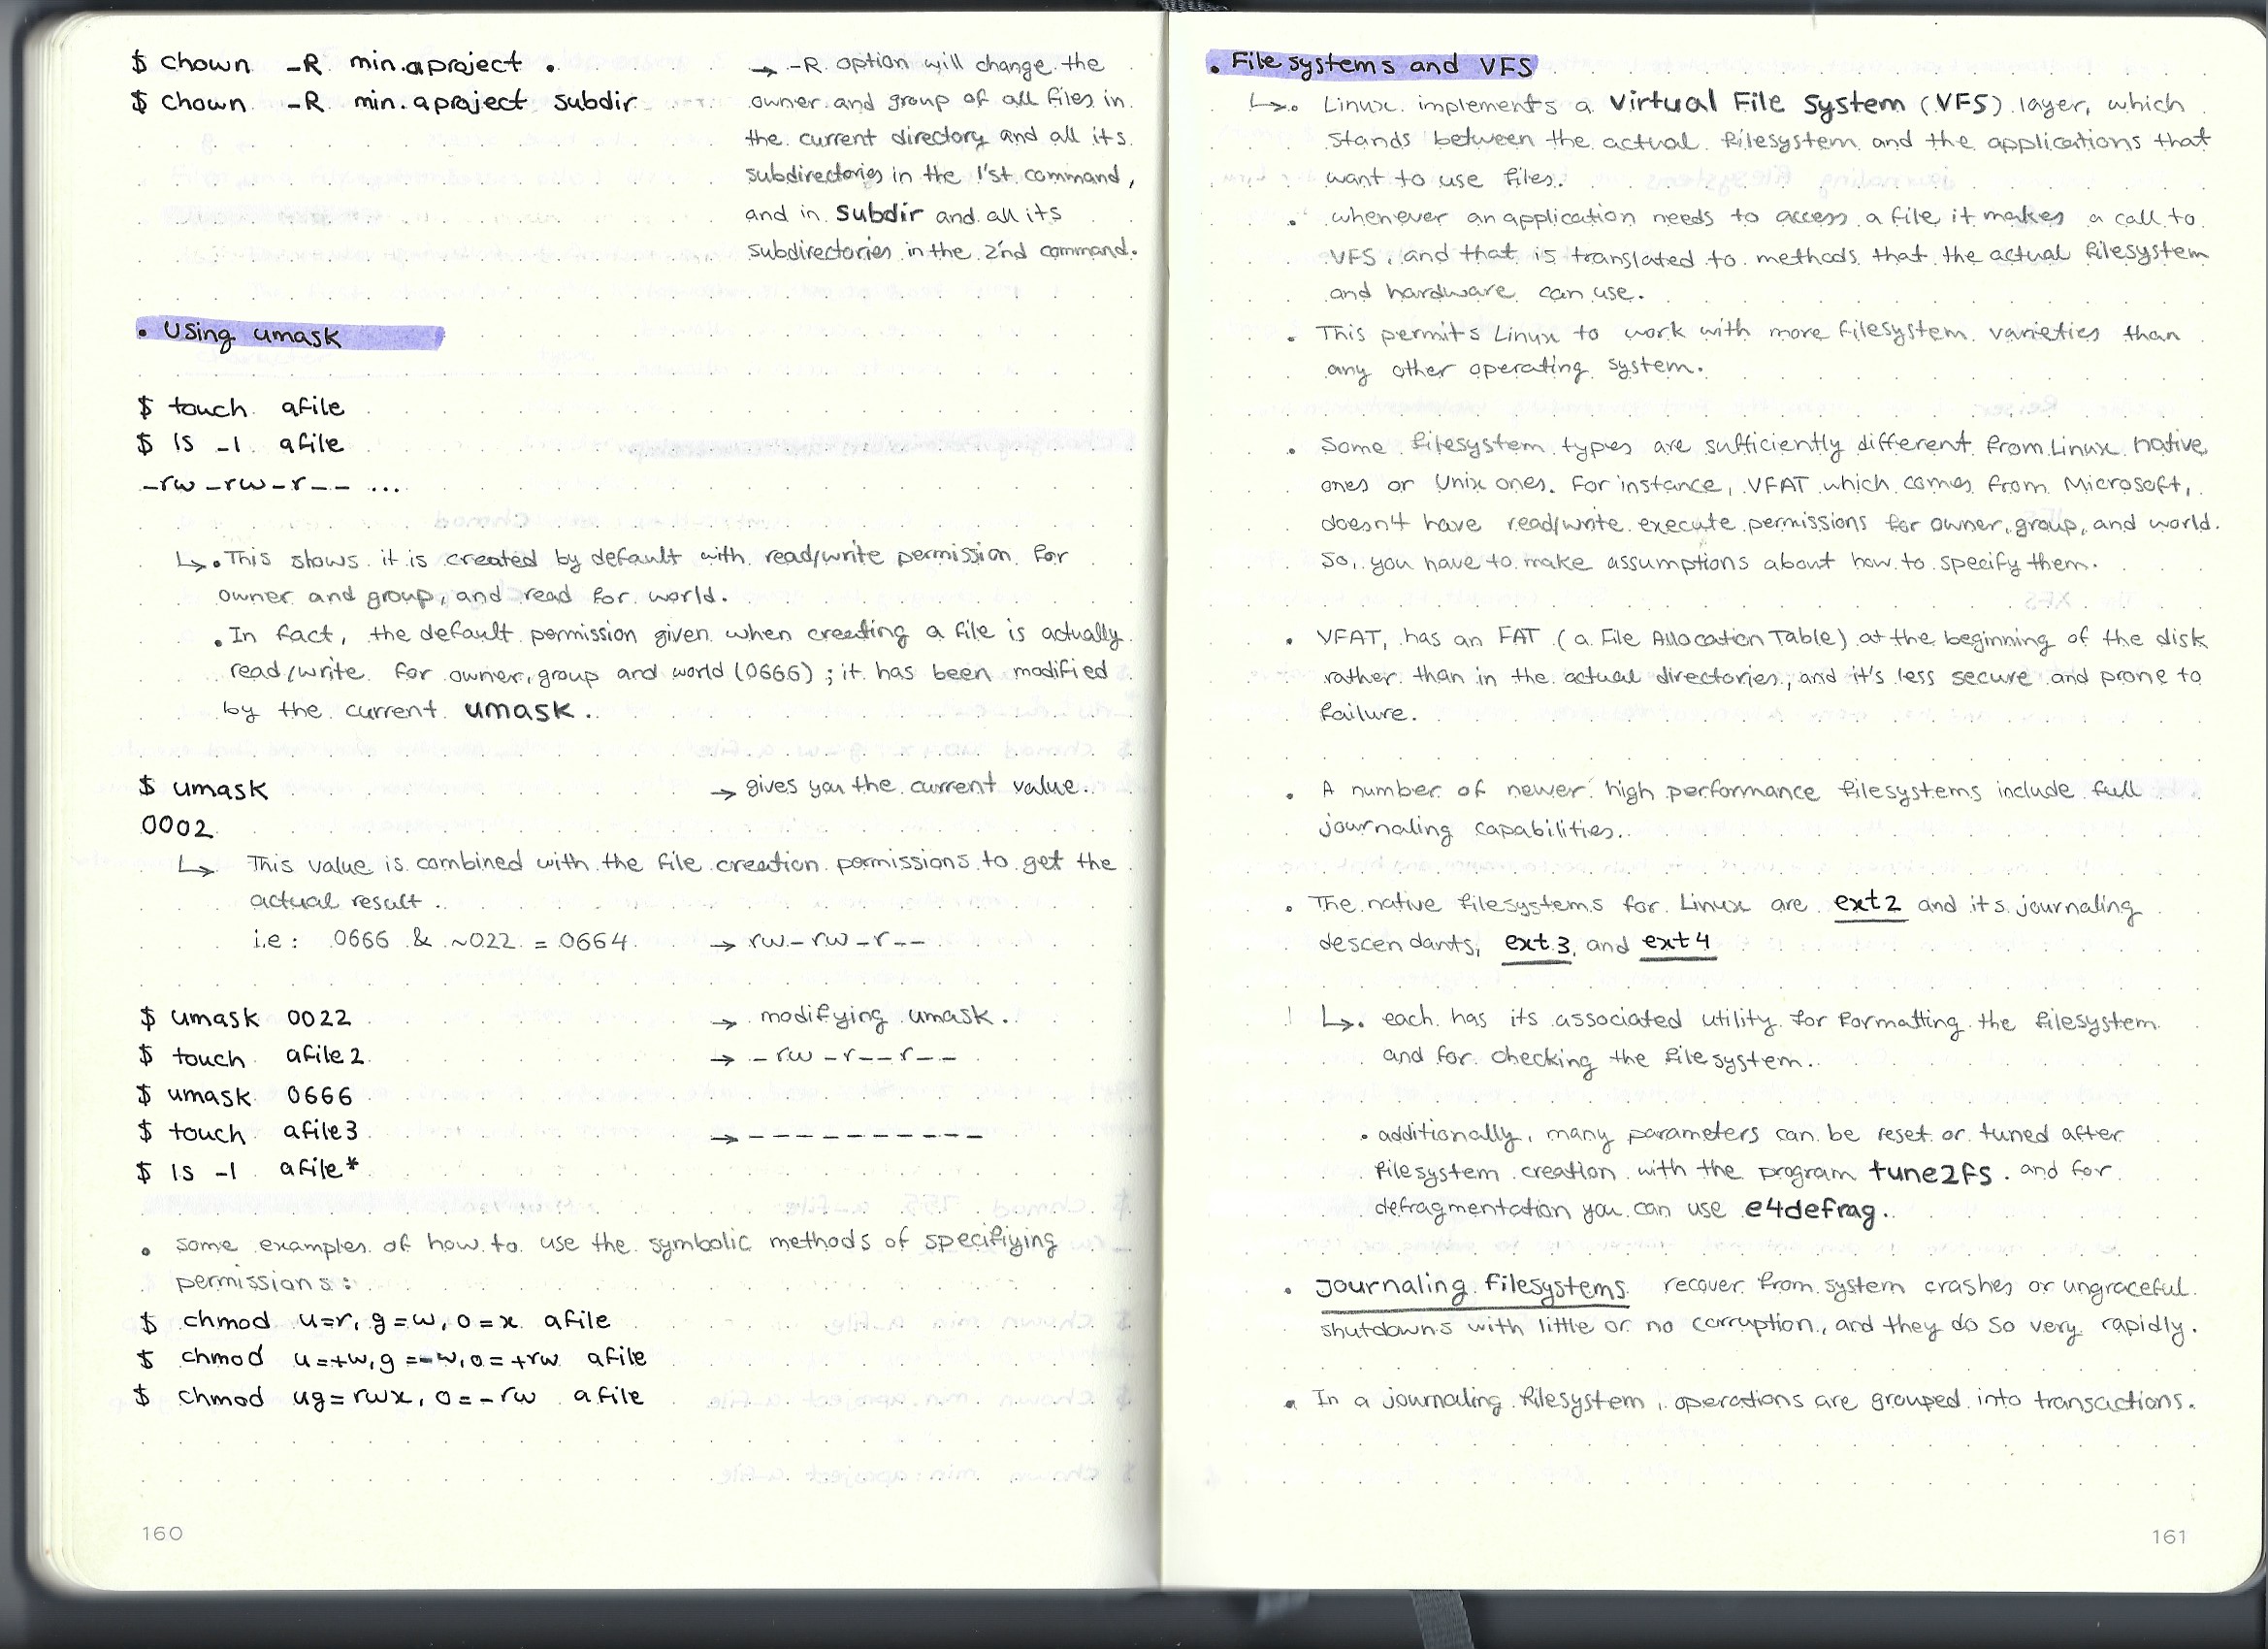 $ chown -R min.aproject .
$ chown -R min.aproject subdir
→ -R option will change the
owner and group of all files in
the current directory and all its
subdirectories in the 1'st command,
and in subdir and all its
subdirectories in the 2'nd command.
• Using umask
$ touch afile
$ ls -l afile
-rw-rw-r-- ...
↳ • This shows it is created by default with read/write permission for
owner and group, and read for world.
• In fact, the default permission given when creating a file is actually
read/write for owner, group and world (0666); it has been modified
by the current umask.
$ umask → gives you the current value.
0002
↳ This value is combined with the file creation permissions to get the
actual result.
i.e: 0666 & ~022 = 0664 → rw-rw-r--
$ umask 0022 → modifying umask.
$ touch afile2 → -rw-r--r--
$ umask 0666
$ touch afile3 → ----------
$ ls -l afile*
• some examples of how to use the symbolic methods of specifiying
permissions:
$ chmod u=r, g=w, o=x afile
$ chmod u=+w, g=-w, o=+rw afile
$ chmod ug=rwx, o=-rw afile
160
• File systems and VFS
↳ • Linux implements a Virtual File System (VFS) layer, which
stands between the actual filesystem and the applications that
want to use files.
• whenever an application needs to access a file it makes a call to
VFS, and that is translated to methods that the actual filesystem
and hardware can use.
• This permits Linux to work with more filesystem varieties than
any other operating system.
• Some filesystem types are sufficiently different from Linux native
ones or Unix ones. For instance, VFAT which comes from Microsoft,
doesn't have read/write execute permissions for owner, group, and world.
So, you have to make assumptions about how to specify them.
• VFAT, has an FAT (a File Allocation Table) at the beginning of the disk
rather than in the actual directories, and it's less secure and prone to
failure.
• A number of newer high performance filesystems include full
journaling capabilities.
• The native filesystems for Linux are ext2 and its journaling
descendants, ext3, and ext4
↳ • each has its associated utility for formatting the filesystem
and for checking the filesystem.
• additionally, many parameters can be reset or tuned after
filesystem creation with the program tune2fs. and for
defragmentation you can use e4defrag.
• Journaling filesystems recover from system crashes or ungraceful
shutdowns with little or no corruption, and they do so very rapidly.
• In a journaling filesystem, operations are grouped into transactions.
161